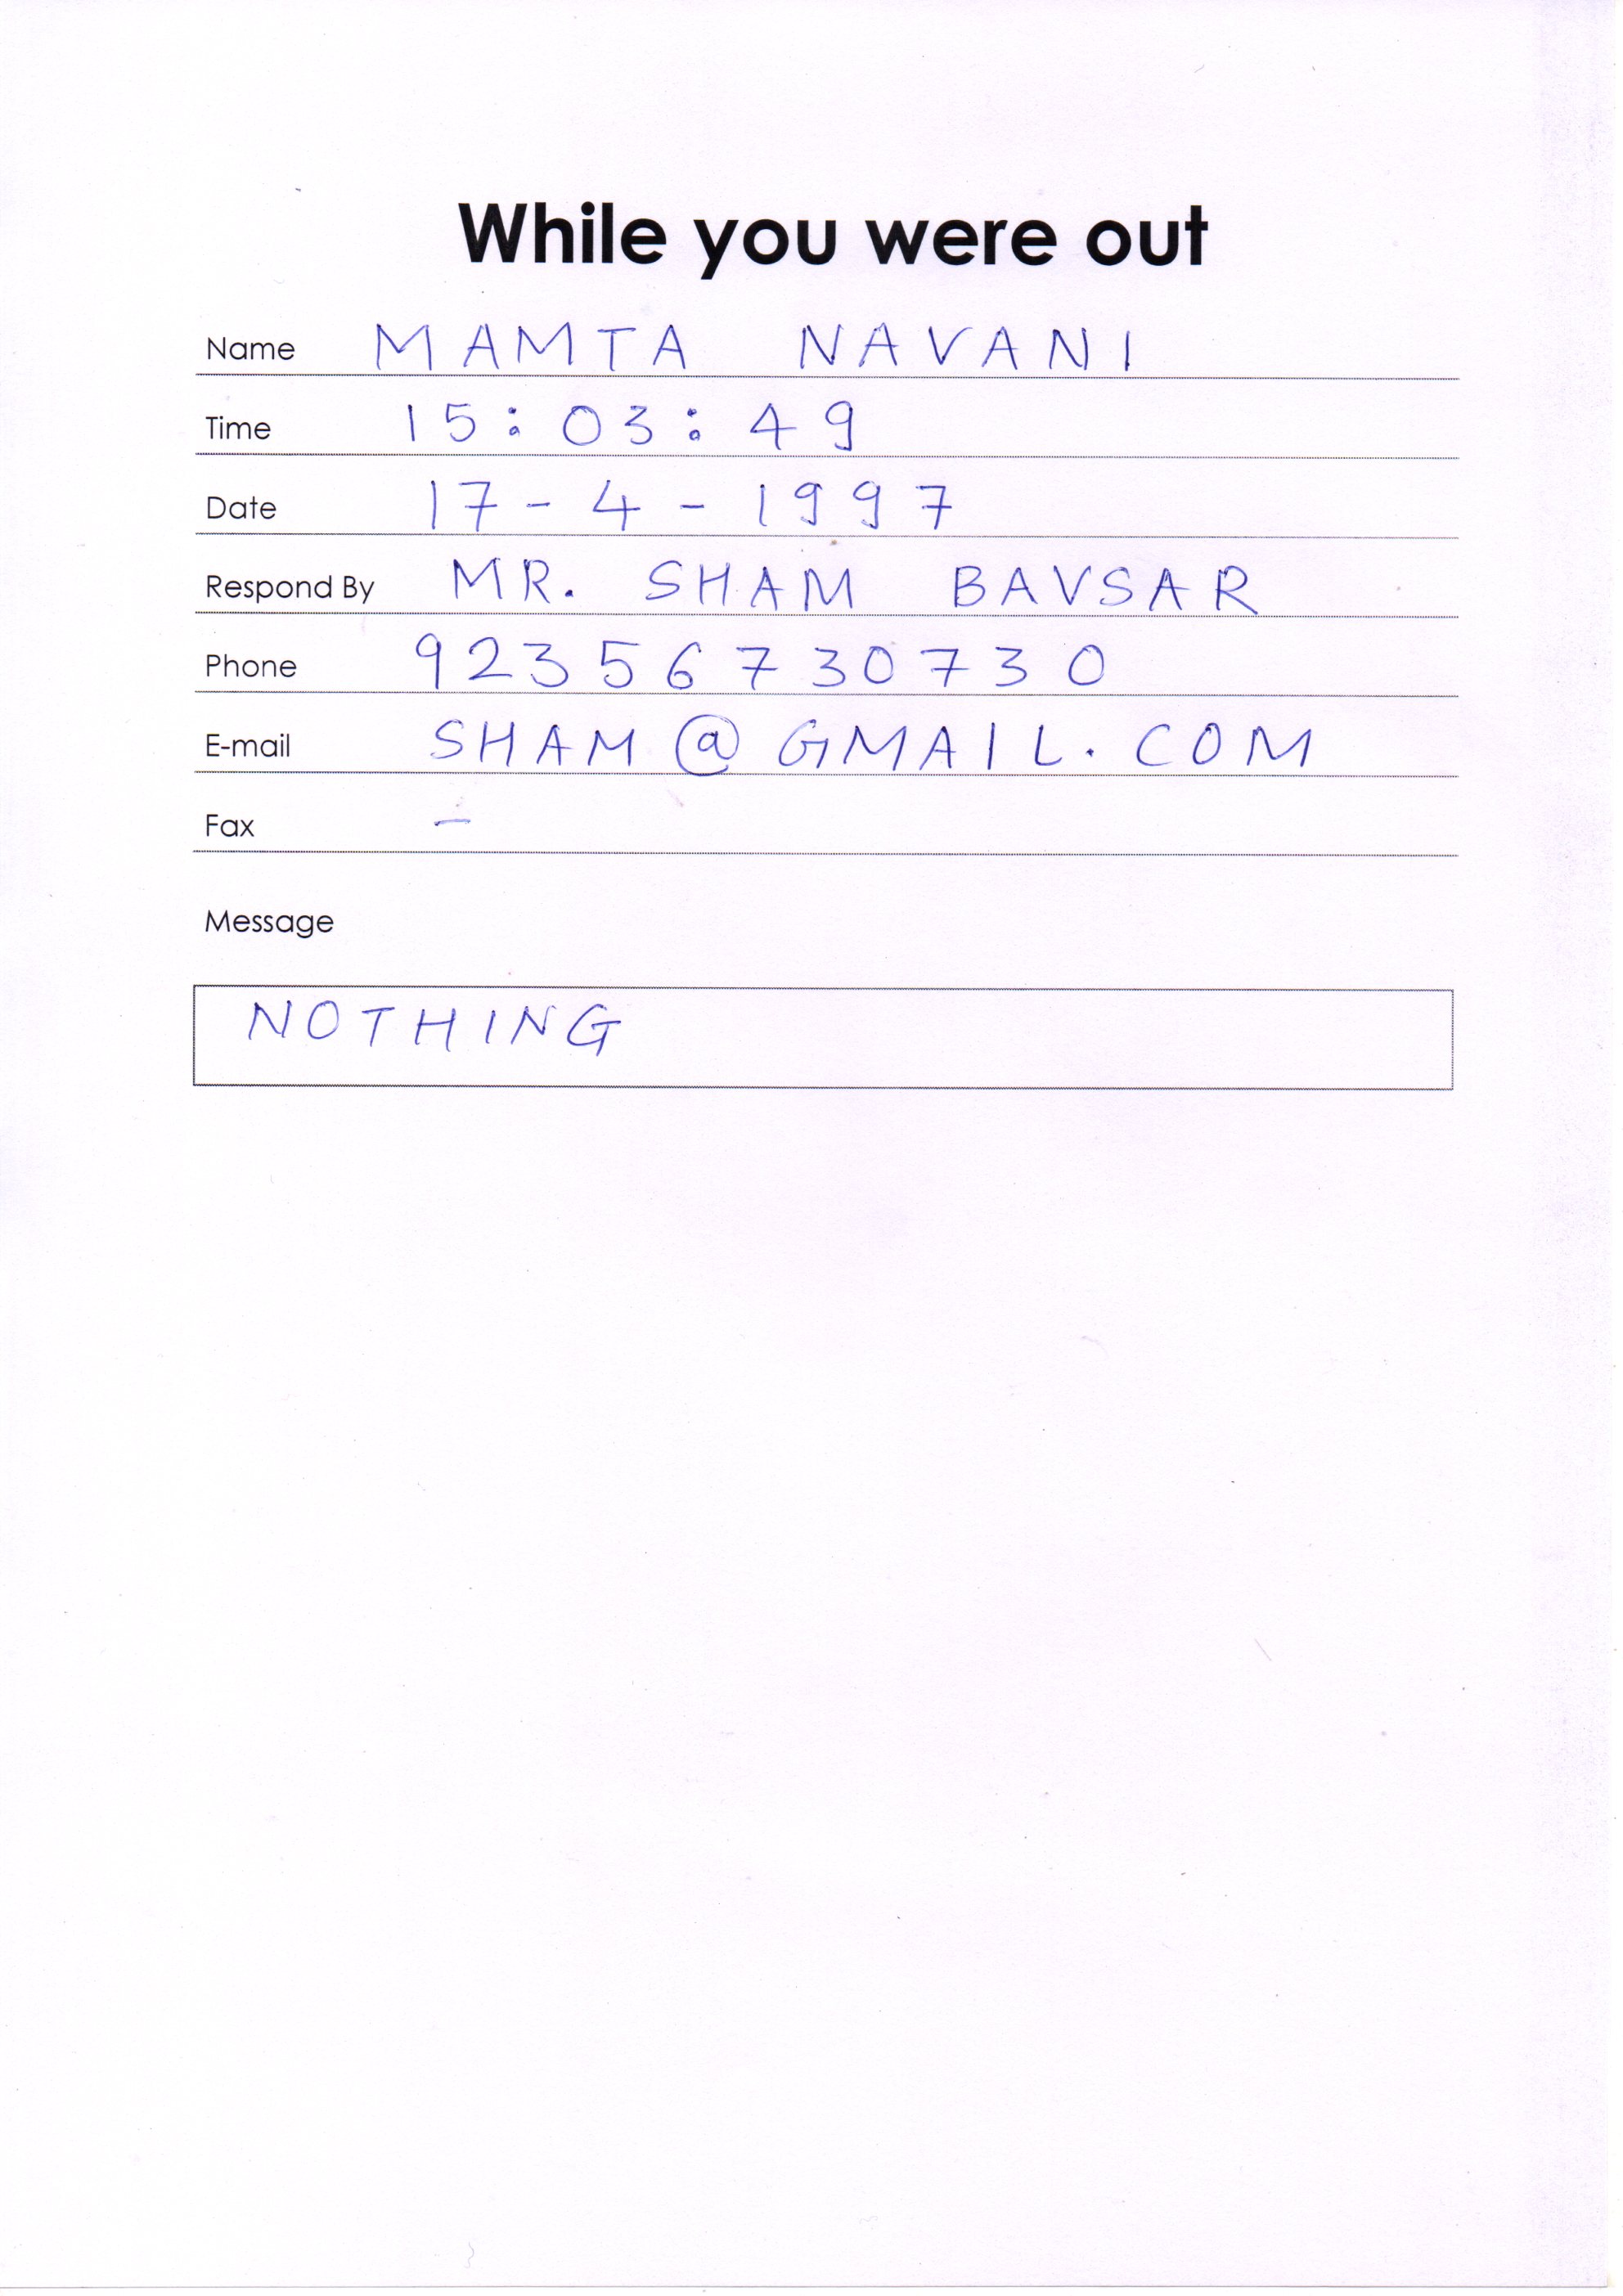 While you were out
Name MAMTA NAVANI
Time 15:03:49
Date 17-4-1997
Respond By MR. SHAM BAVSAR
Phone 92356730730
E-mail SHAM@GMAIL.COM
Fax -
Message
NOTHING